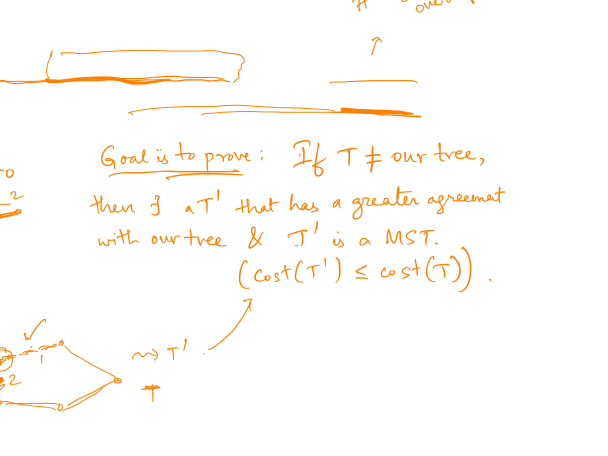 Goal is to prove: If T ≠ our tree,
then ∃ a T' that has a greater agreement
with our tree & T' is a MST.
(cost(T') ≤ cost(T)).
2
1
⇝ T'
2
T